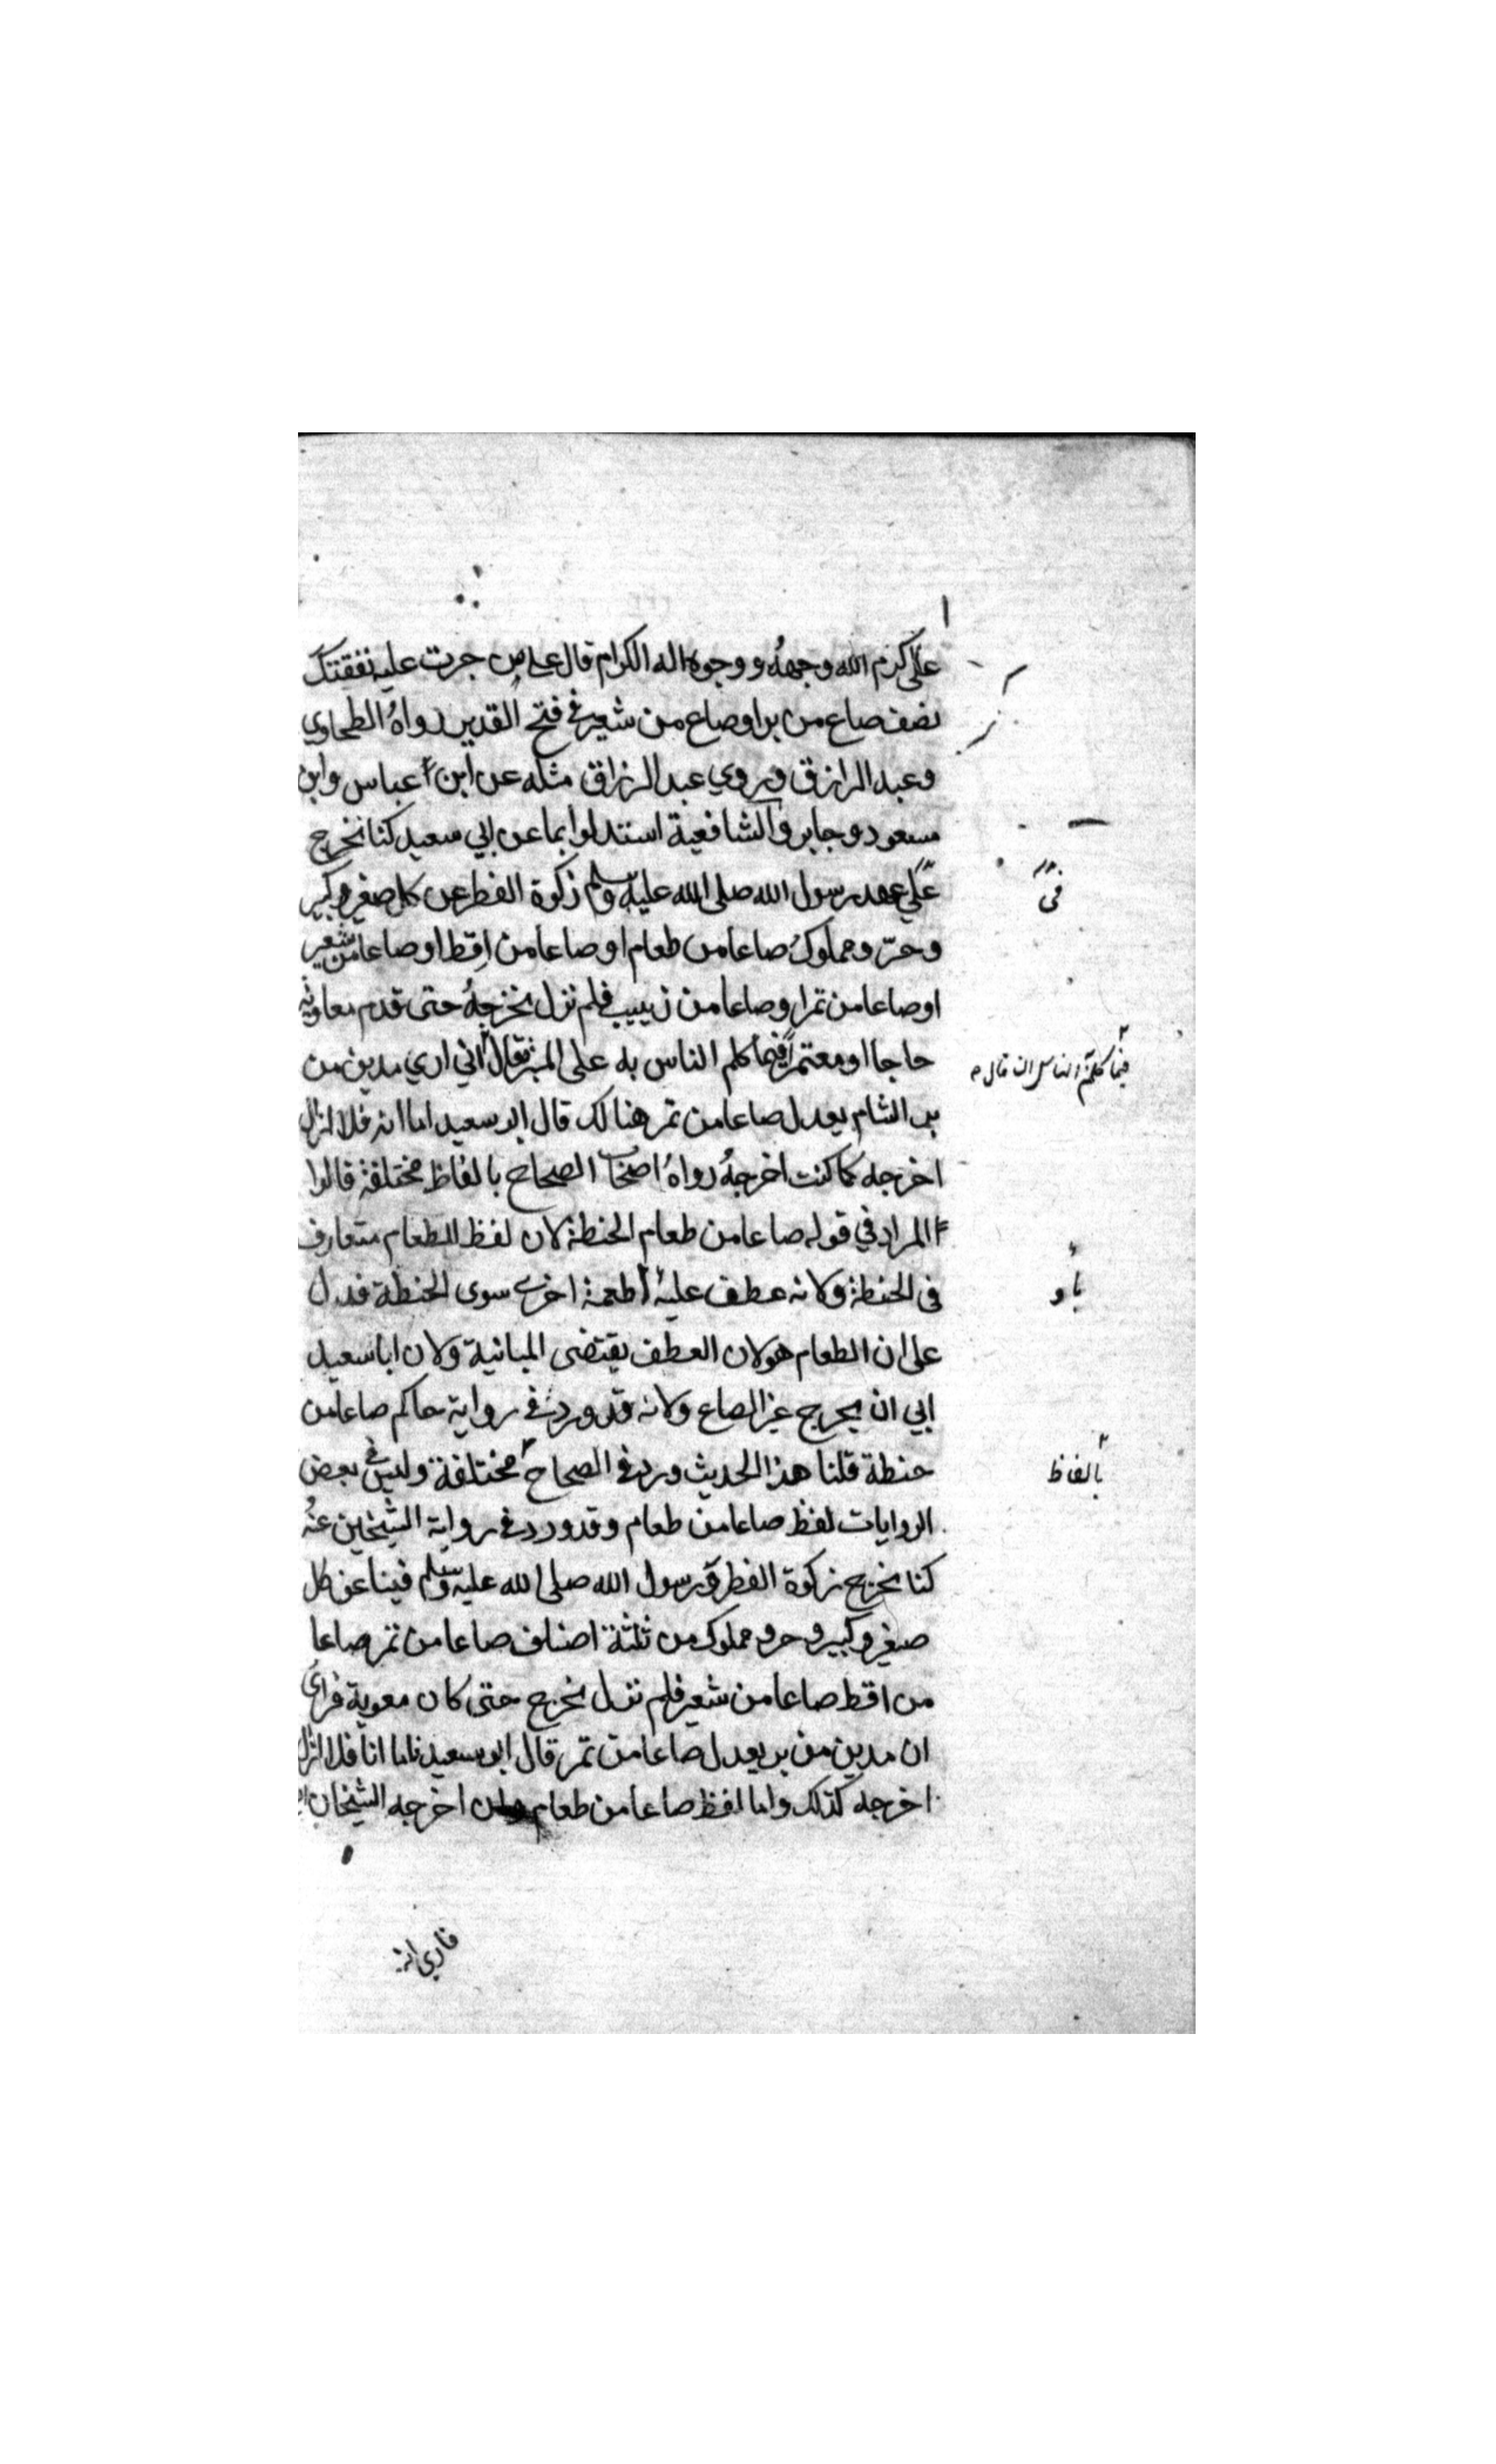 علي كرم الله وجهه ووجوه اله الكرام قال علي من جرت عليه نفقتك
نصف صاع من بر او صاع من شعير في فتح القدير رواه الطحاوي
وعبد الرازق وروي عبد الرزاق مثله عن ابن عباس وابن
مسعود وجابر والشافعية استدلوا بما عن ابي سعيد كنا نخرج
علي عهد رسول الله صلى الله عليه وسلم زكوة الفطر عن كل صغير وكبير
في
وحر ومملوك صاعا من طعام او صاعا من اقط او صاعا من شعير
او صاعا من تمر او صاعا من زبيب فلم نزل نخرجه حتى قدم معاوية
حاجا او معتمرا فيما كلم الناس به على المنبر فقال اني اري مدين من
فيما كلم الناس ان قال
بر الشام يعدل صاعا من تمر هنالك قال ابو سعيد اما انا فلا ازال
اخرجه كما كنت اخرجه رواه اصحاب الصحاح بالفاظ مختلفة قالوا
المراد في قوله صاعا من طعام الحنطة لان لفظ الطعام متعارف
في الحنطة ولانه عطف عليه اطعمة اخرى سوى الحنطة فدل
باو
على ان الطعام هو لان العطف يقتضى المبانية ولان ابا سعيد
ابي ان يخرج غير الصاع ولانه قد ورد في رواية حاكم صاعا من
حنطة قلنا هذا الحديث ورد في الصحاح مختلفة وليس في بعض
بالفاظ
الروايات لفظ صاعا من طعام وقد ورد في رواية الشيخين عنه
كنا نخرج زكوة الفطر ورسول الله صلى الله عليه وسلم فينا عن كل
صغير وكبير وحر ومملوك من ثلثة اصناف صاعا من تمر صاعا
من اقط صاعا من شعير فلم نزل نخرج حتى كان معوية فراى
ان مدين من بر يعدل صاعا من تمر قال ابو سعيد فاما انا فلا ازال
اخرجه كذلك واما لفظ صاعا من طعام اخرجه الشيخان